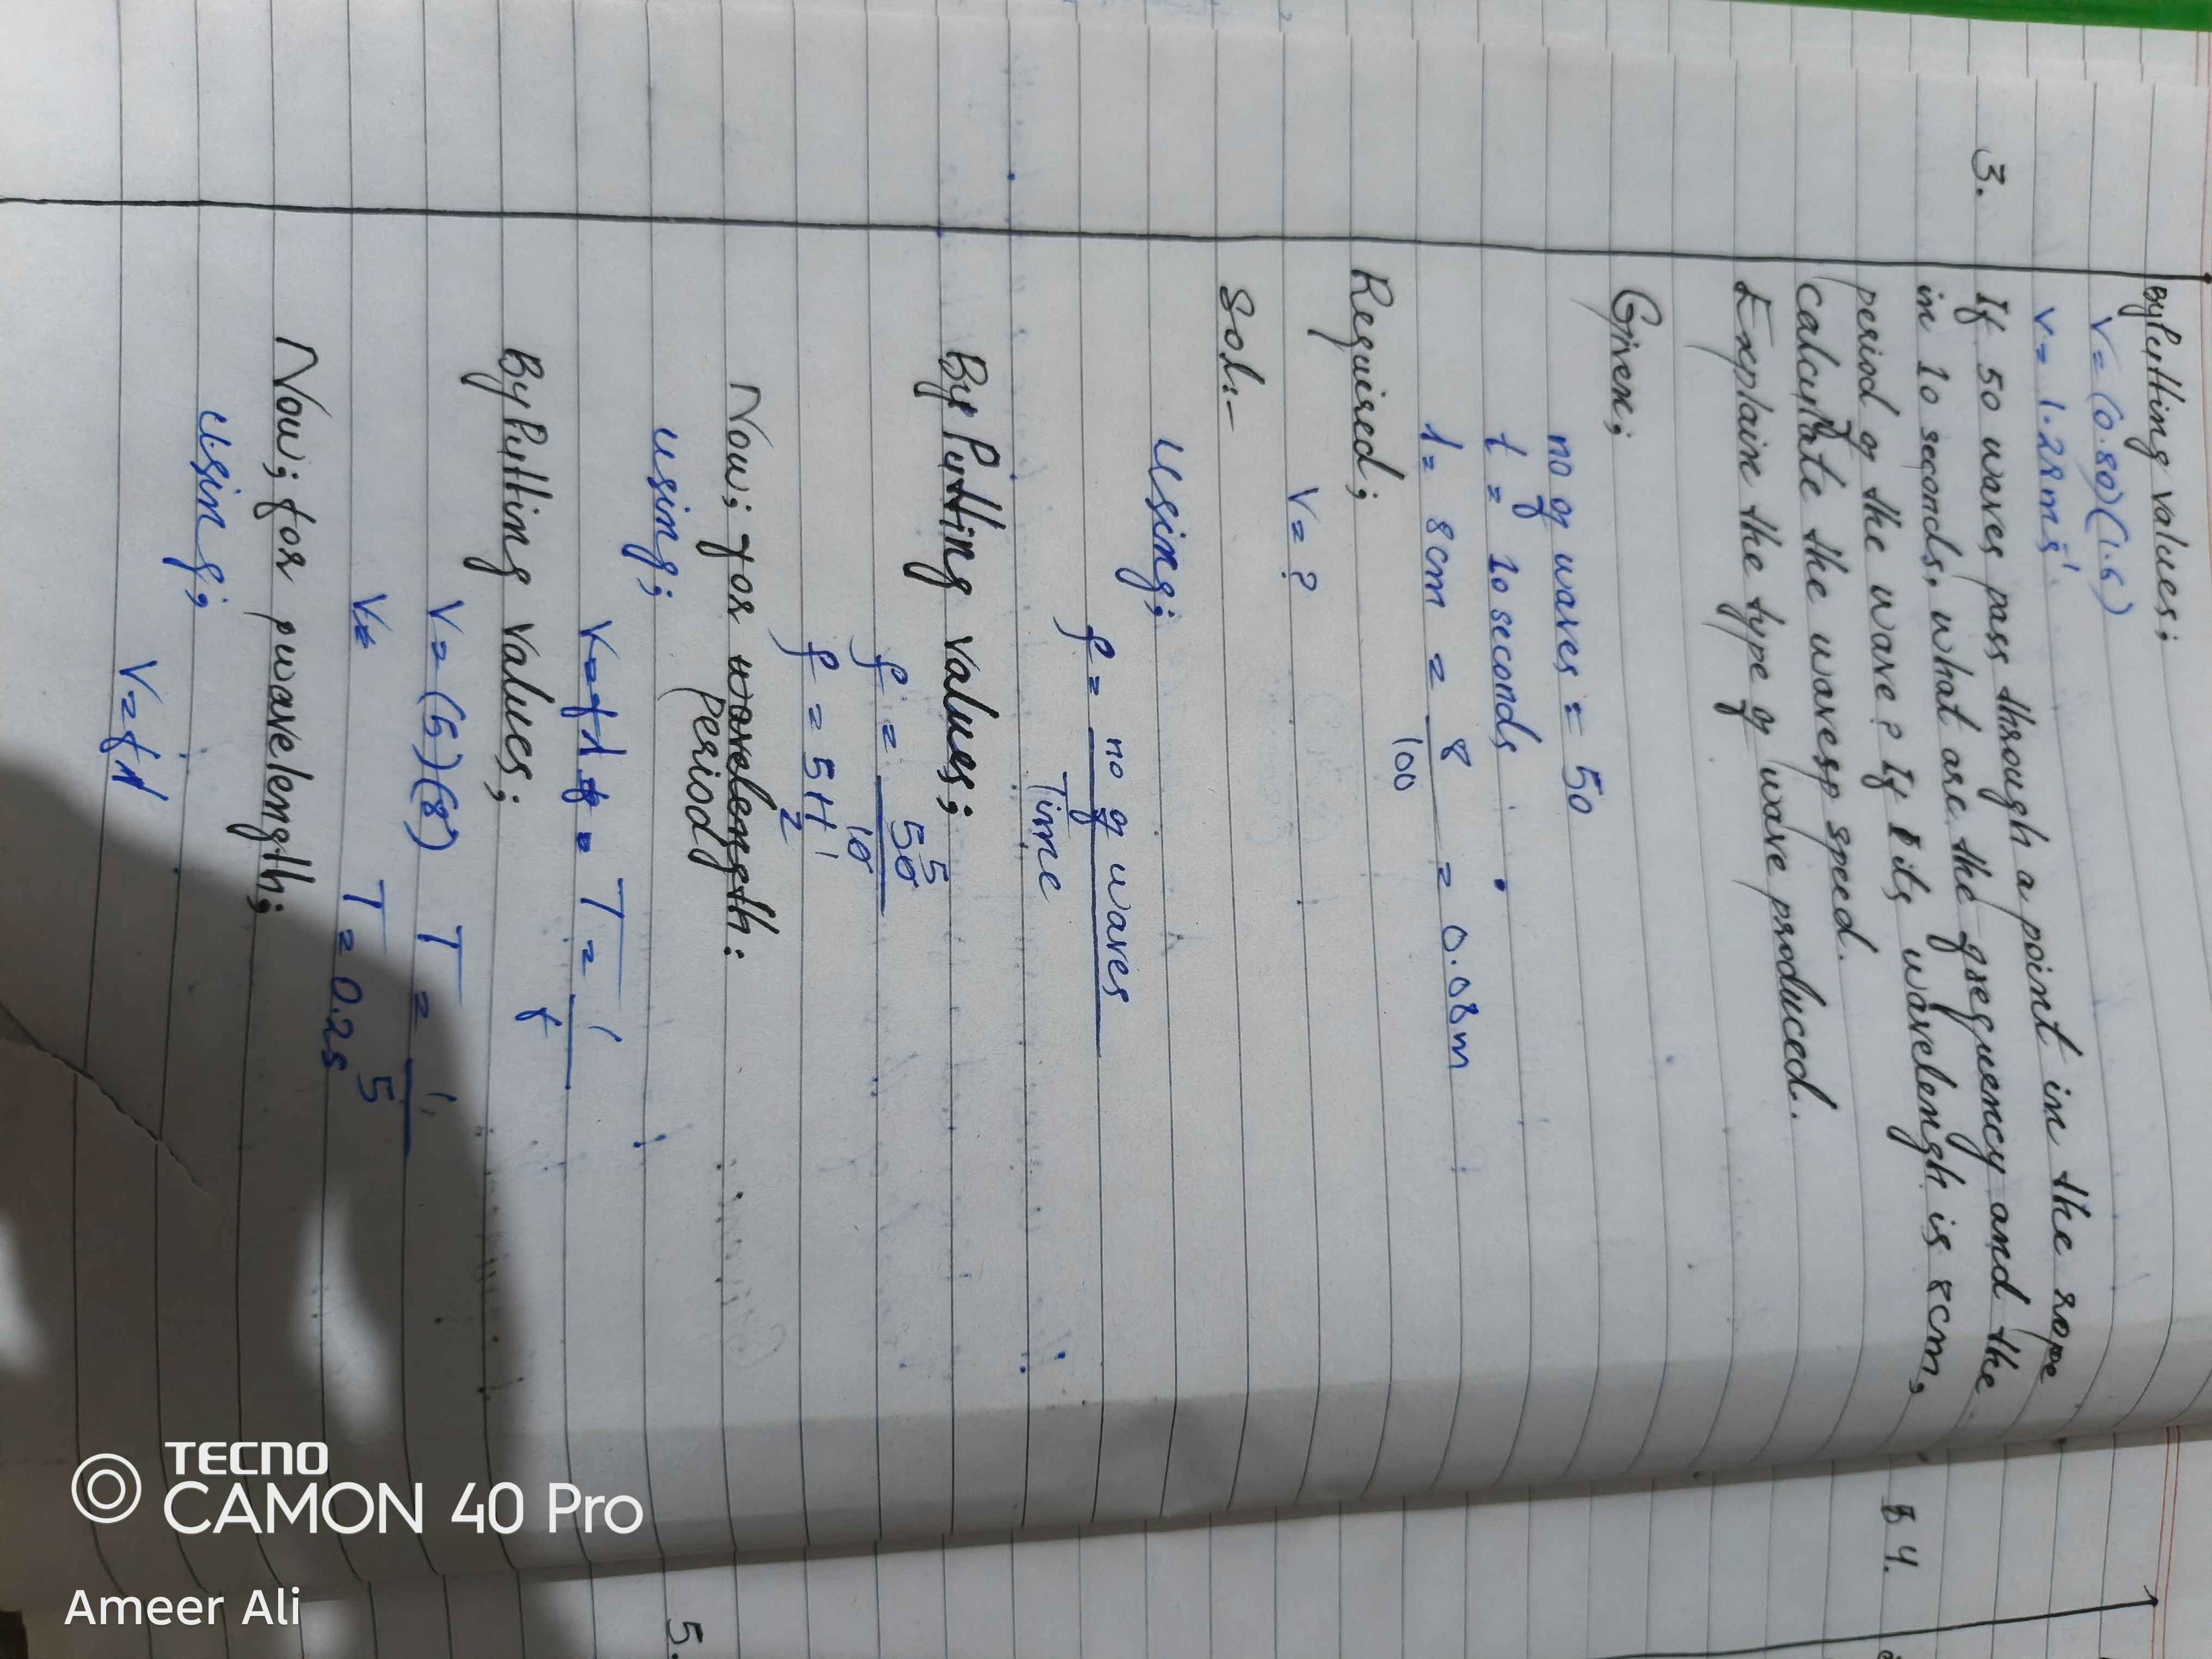 By Putting values;
v = (0.80)(1.6)
v = 1.28 ms⁻¹
3. If 50 waves pass through a point in the rope
in 10 seconds, what are the frequency and the
period of the wave? If its wavelengh is 8cm,
calculate the wavesp speed.
Explain the type of wave produced.
Given;
no of waves = 50
t = 10 seconds
λ = 8cm = 8/100 = 0.08m
Required;
V = ?
Sol:-
using;
f = no of waves / Time
By Putting values;
f = 50/10
5
1
f = 5Hz
Now; for wavelength:
period
using;
V=fλ = T = 1/f
By Putting values;
V = (5)(8) T = 1/5
V= T = 0.2s
Now; for pwavelength;
using;
V=fλ
4.
5.
TECNO
CAMON 40 Pro
Ameer Ali